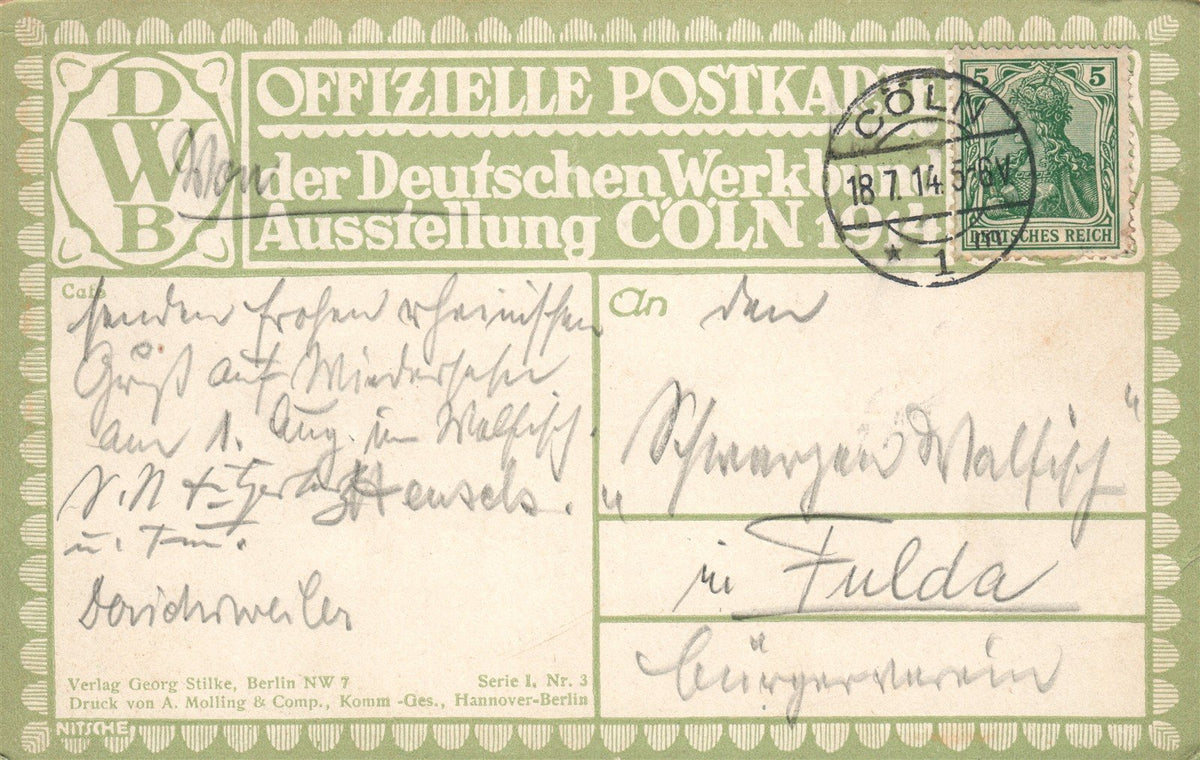 DWB
OFFIZIELLE POSTKAR
der Deutschen Werkbund
Ausstellung CÖLN 1914
CÖLN
18.7.14.5-6V
* 1
5 5
DEUTSCHES REICH
Von
Café
senden frohen rheinischen
Gruß auf Wiedersehn
am 1. Aug. im Walfisch.
Hensels.
u.
An den
„Schwarzen Walfisch“
in Fulda
Bürgerverein
Verlag Georg Stilke, Berlin NW 7
Serie I, Nr. 3
Druck von A. Molling & Comp., Komm-Ges., Hannover-Berlin
NITSCHE